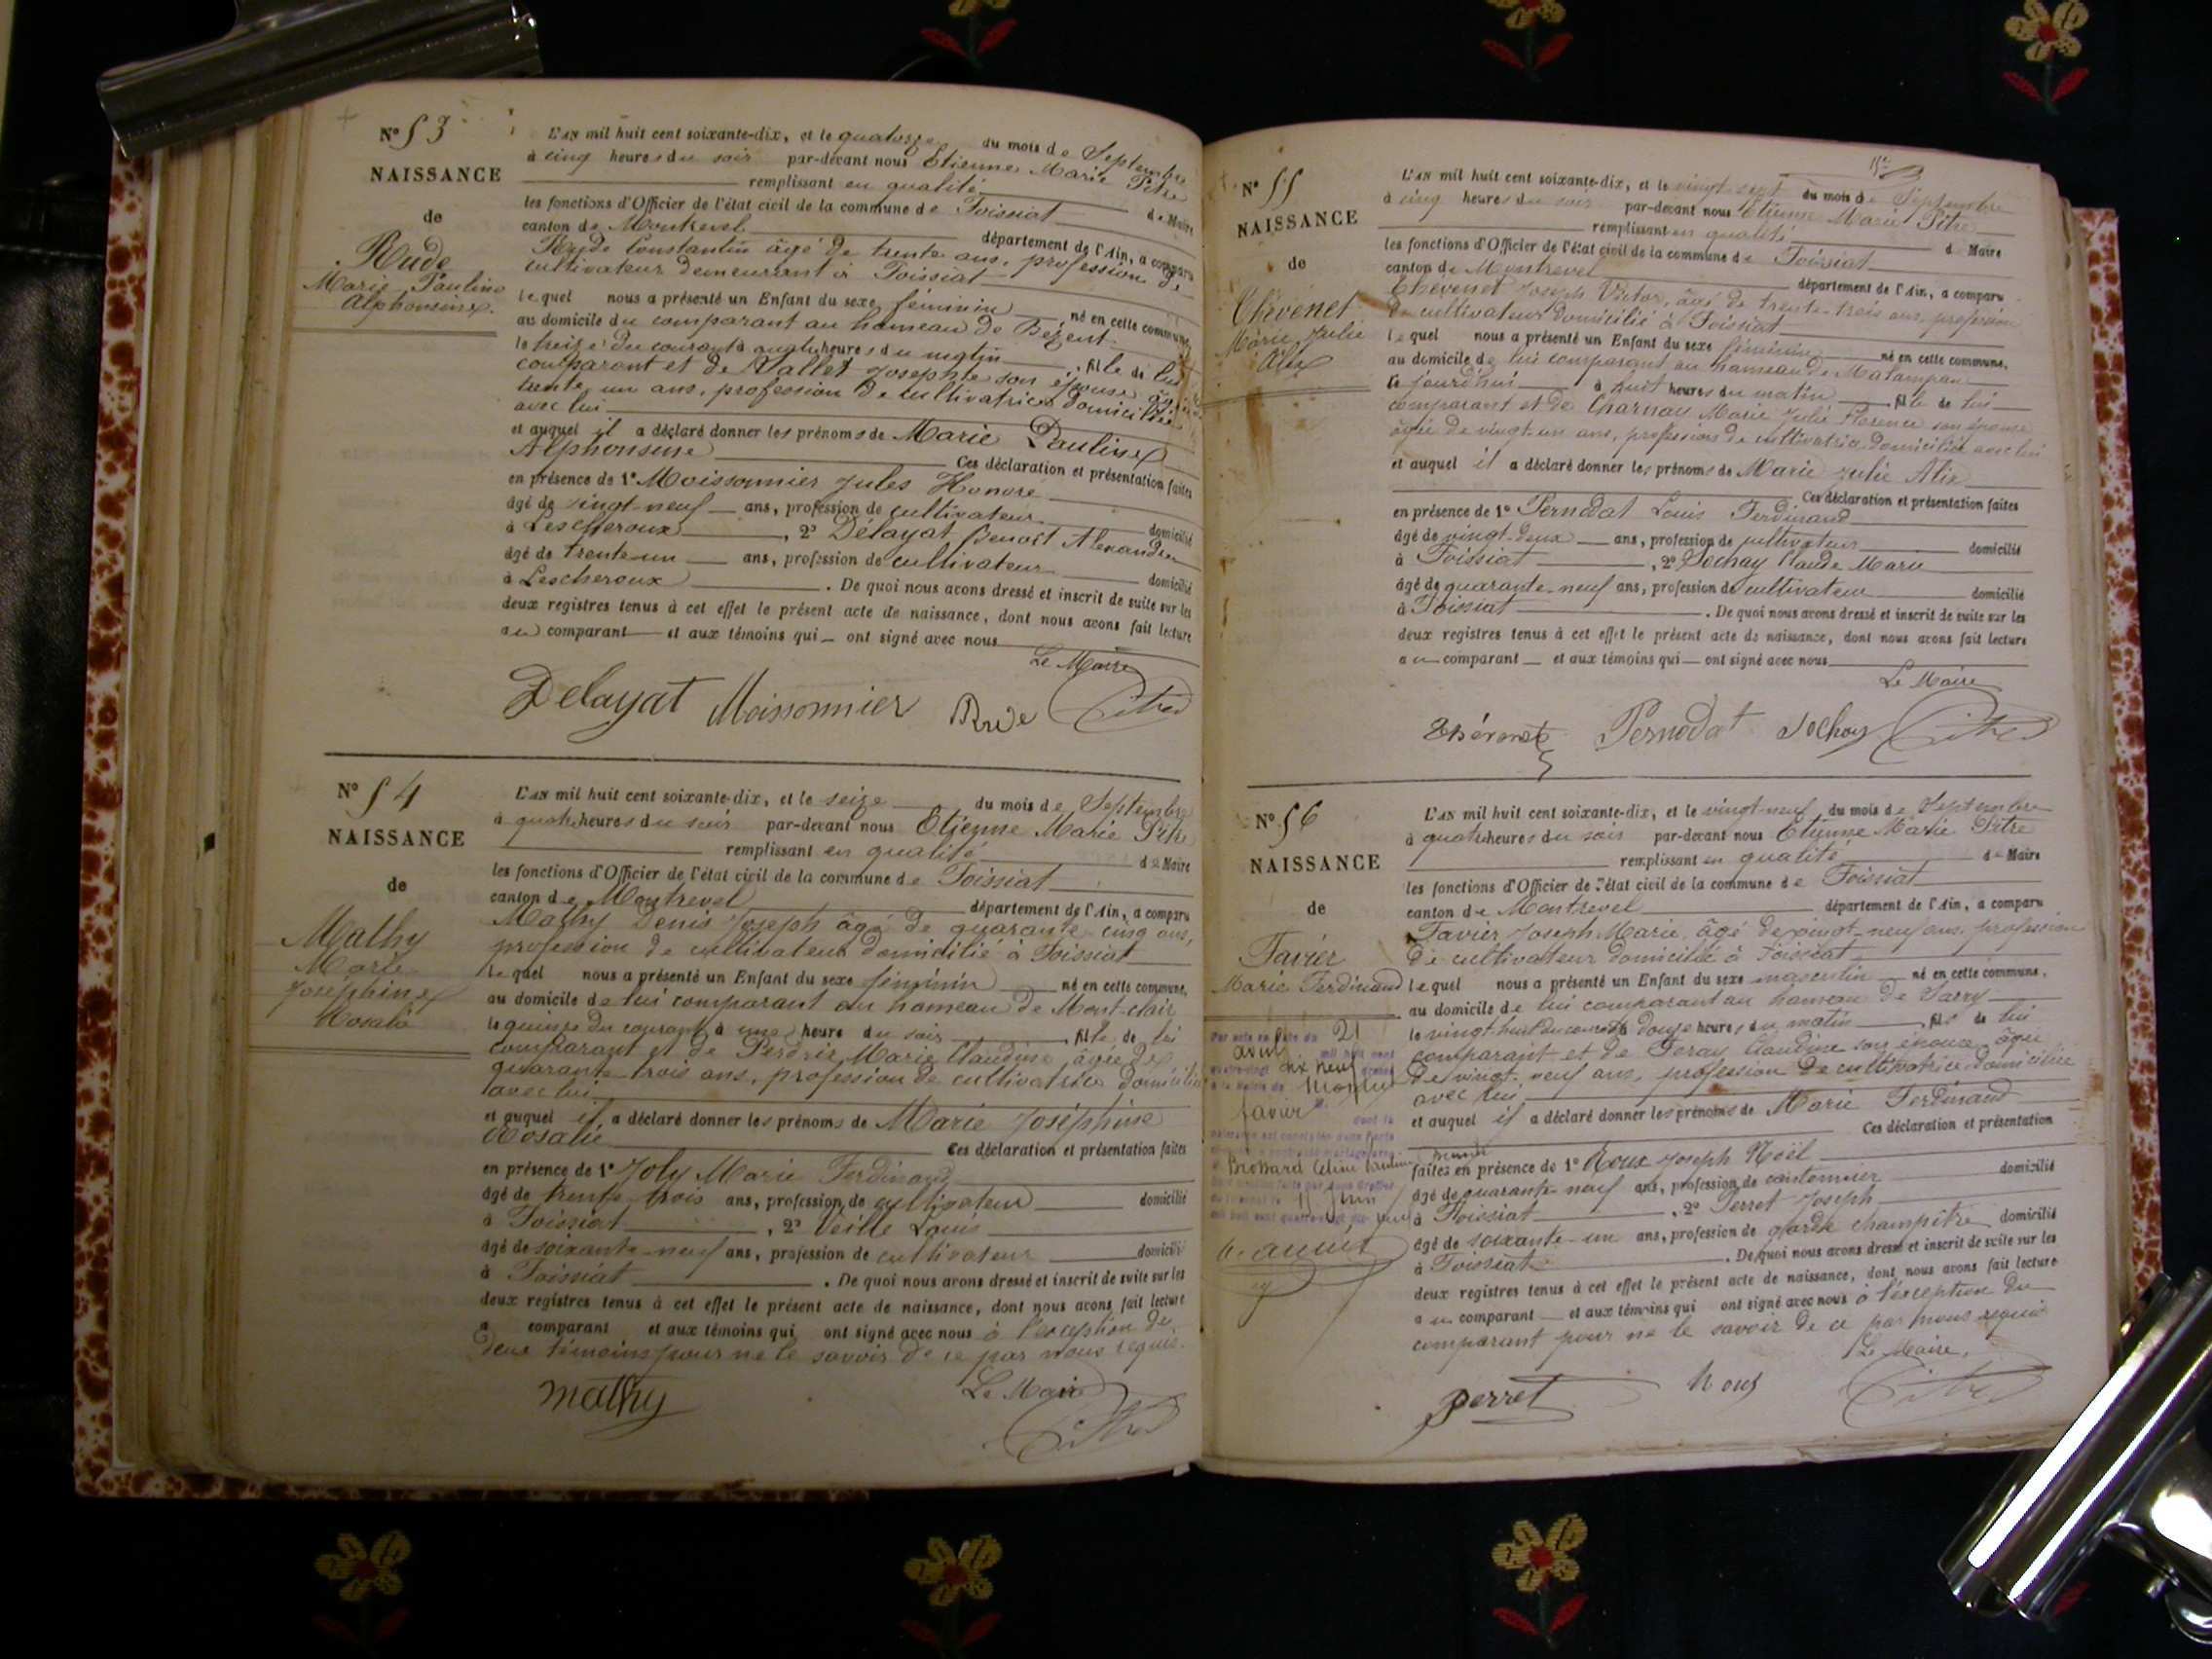 N° 53
NAISSANCE
de
Rude
Marie Pauline
Alphonsine
L'AN mil huit cent soixante-dix, et le quatorze du mois de Septembre
à cinq heures du soir par-devant nous Etienne Marie Pitre
remplissant en qualité de Maire
les fonctions d'Officier de l'état civil de la commune de Foissiat
canton de Montrevel département de l'Ain, a comparu
Rude Constantin âgé de trente ans, profession de
cultivateur demeurant à Foissiat
lequel nous a présenté un Enfant du sexe féminin né en cette commune,
au domicile du comparant au hameau de Bezent
le treize du courant à quatre heures du matin, fille de lui
comparant et de Vallet Josephte son épouse âgée
trente un ans, profession de cultivatrice domiciliée
avec lui
et auquel il a déclaré donner les prénoms de Marie Pauline
Alphonsine Ces déclaration et présentation faites
en présence de 1° Moissonnier Jules Honoré
âgé de vingt-neuf ans, profession de cultivateur domicilié
à Lescheroux, 2° Délayat Benoit Alexandre
âgé de trente-un ans, profession de cultivateur domicilié
à Lescheroux. De quoi nous avons dressé et inscrit de suite sur les
deux registres tenus à cet effet le présent acte de naissance, dont nous avons fait lecture
au comparant et aux témoins qui ont signé avec nous
Le Maire
Delayat Moissonnier Rude Pitre
N° 54
NAISSANCE
de
Mathy
Marie
Joséphine
Rosalie
L'AN mil huit cent soixante-dix, et le seize du mois de Septembre
à quatre heures du soir par-devant nous Etienne Marie Pitre
remplissant en qualité de Maire
les fonctions d'Officier de l'état civil de la commune de Foissiat
canton de Montrevel département de l'Ain, a comparu
Mathy Denis Joseph âgé de quarante cinq ans,
profession de cultivateur domicilié à Foissiat
lequel nous a présenté un Enfant du sexe féminin né en cette commune,
au domicile de lui comparant au hameau de Mont-clair
le quinze du courant à une heure du soir, fille de lui
comparant et de Perdrix Marie Claudine, âgée de
quarante-trois ans, profession de cultivatrice domiciliée
avec lui
et auquel il a déclaré donner les prénoms de Marie Joséphine
Rosalie Ces déclaration et présentation faites
en présence de 1° Joly Marie Ferdinand
âgé de trente trois ans, profession de cultivateur domicilié
à Foissiat, 2° Veille Louis
âgé de soixante-neuf ans, profession de cultivateur domicilié
à Foissiat. De quoi nous avons dressé et inscrit de suite sur les
deux registres tenus à cet effet le présent acte de naissance, dont nous avons fait lecture
a comparant et aux témoins qui ont signé avec nous à l'exception de
deux témoins pour ne le savoir de ce par nous requis.
Le Maire
mathy Pitre
N° 55
NAISSANCE
de
Chevenet
Marie Julie
Alix
L'AN mil huit cent soixante-dix, et le vingt-sept du mois de Septembre
à cinq heures du soir par-devant nous Etienne Marie Pitre
remplissant en qualité d Maire
les fonctions d'Officier de l'état civil de la commune de Foissiat
canton de Montrevel département de l'Ain, a comparu
Chevenet Joseph Victor, âgé de trente-trois ans, profession
de cultivateur domicilié à Foissiat
lequel nous a présenté un Enfant du sexe féminin né en cette commune,
au domicile de lui comparant au hameau de Malampan
le jourd'hui à huit heures du matin, fille de lui
comparant et de Charnay Marie Julie Florence son épouse
âgée de vingt-un ans, profession de cultivatrice domiciliée avec lui
et auquel il a déclaré donner les prénoms de Marie Julie Alix
Ces déclaration et présentation faites
en présence de 1° Pernodat Louis Ferdinand
âgé de vingt-deux ans, profession de cultivateur domicilié
à Foissiat, 2° Sochay Claude Marie
âgé de quarante-neuf ans, profession de cultivateur domicilié
à Foissiat. De quoi nous avons dressé et inscrit de suite sur les
deux registres tenus à cet effet le présent acte de naissance, dont nous avons fait lecture
au comparant et aux témoins qui ont signé avec nous
Le Maire
Chévenet Pernodat Sochay Pitre
N° 56
NAISSANCE
de
Favier
Marie Ferdinand
L'AN mil huit cent soixante-dix, et le vingt-neuf du mois de Septembre
à quatre heures du soir par-devant nous Etienne Marie Pitre
remplissant en qualité de Maire
les fonctions d'Officier de l'état civil de la commune de Foissiat
canton de Montrevel département de l'Ain, a comparu
Favier Joseph Marie, âgé de vingt-neuf ans, profession
de cultivateur domicilié à Foissiat
lequel nous a présenté un Enfant du sexe masculin né en cette commune,
au domicile de lui comparant au hameau de Sarry
le vingt-huit du courant à douze heures du matin, fils de lui
comparant et de Feray Claudine son épouse, âgée
de vingt neuf ans, profession de cultivatrice domiciliée
avec lui
et auquel il a déclaré donner les prénoms de Marie Ferdinand
Ces déclaration et présentation
faites en présence de 1° Roux Joseph Noël
âgé de quarante-neuf ans, profession de cantonnier domicilié
à Foissiat, 2° Perret Joseph
âgé de soixante-un ans, profession de garde champitre domicilié
à Foissiat. De quoi nous avons dressé et inscrit de suite sur les
deux registres tenus à cet effet le présent acte de naissance, dont nous avons fait lecture
au comparant et aux témoins qui ont signé avec nous à l'exception du
comparant pour ne le savoir de ce par nous requis
Le Maire,
perret Roux Pitre
Par acte en date du 21
avril mil huit cent
quatre-vingt dix neuf
Favier dont la
Brossard Céline
11 Juin
mil huit cent quatre-vingt dix neuf